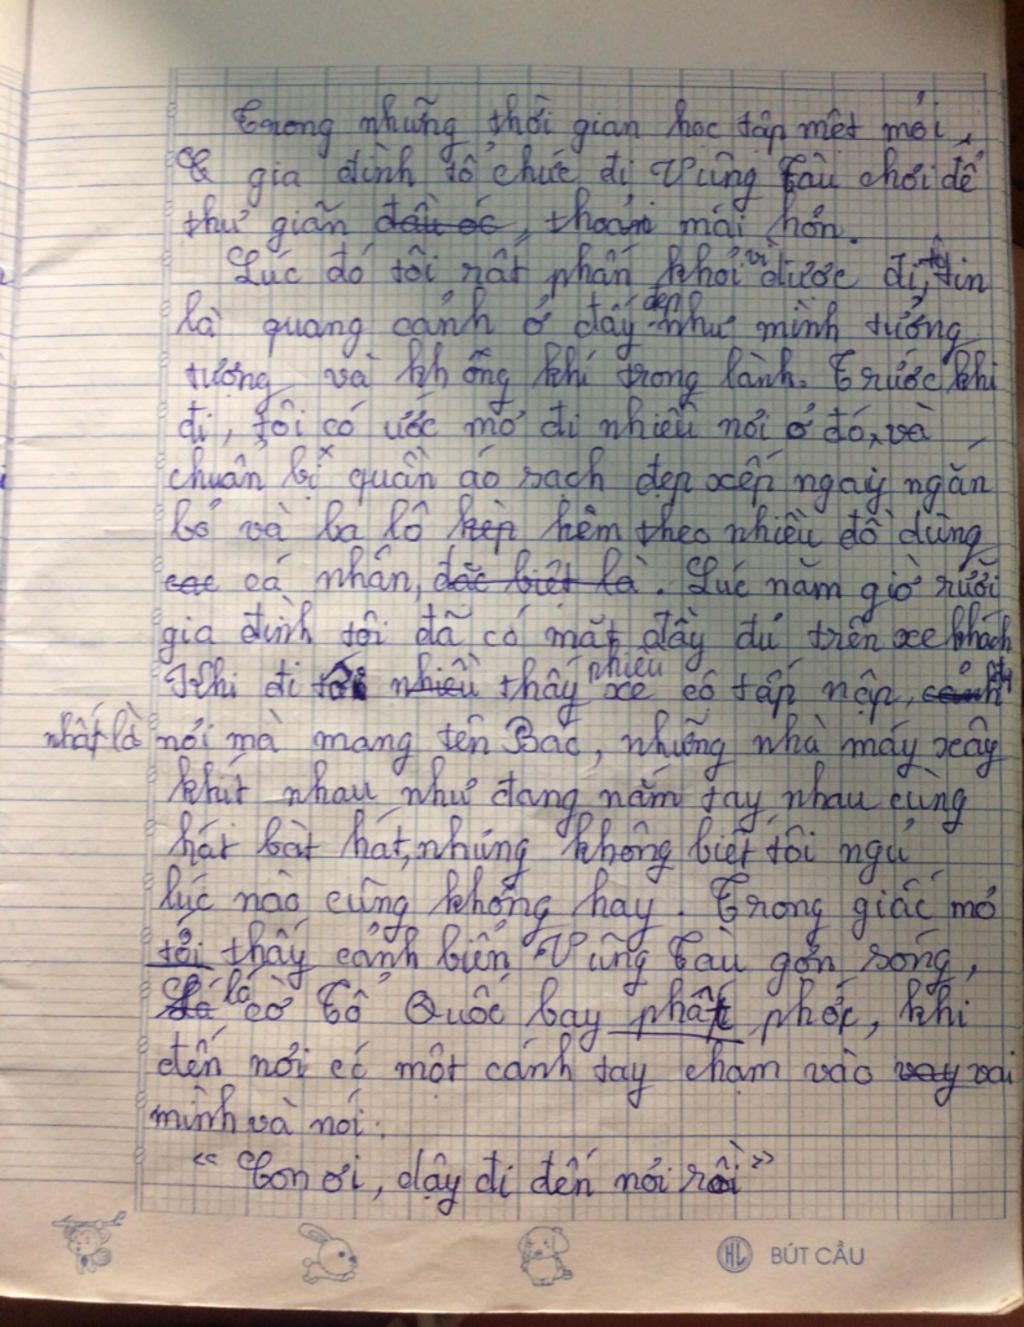 Trong những thời gian học tập mệt mỏi,
cả gia đình tổ chức đi Vũng Tàu chơi để
thư giãn đầu óc, thoải mái hơn.
Lúc đó tôi rất phấn khởi vì được đi, tôi tin
là quang cảnh ở đấy đẹp như mình tưởng
tượng và không khí trong lành. Trước khi
đi, tôi có ước mơ đi nhiều nơi ở đó, và
chuẩn bị quần áo sạch đẹp xếp ngay ngắn
bỏ và ba lô kèp kèm theo nhiều đồ dùng
các cá nhân, đặc biệt là. Lúc năm giờ rưỡi
gia đình tôi đã có mặt đầy đủ trên xe khách
Khi đi tôi nhiều thấy nhiều xe cộ tấp nập,
nhất là nơi mà mang tên Bác, những nhà máy xây
khít nhau như đang nắm tay nhau cùng
hát bài hát, nhưng không biết tôi ngủ
lúc nào cũng không hay. Trong giấc mơ
tôi thấy cảnh biển Vũng Tàu gợn sóng,
lá cờ Tổ Quốc bay phất phới, khi
đến nơi có một cánh tay chạm vào vay vai
mình và nói:
"Con ơi, dậy đi đến nơi rồi"
HL BÚT CẦU